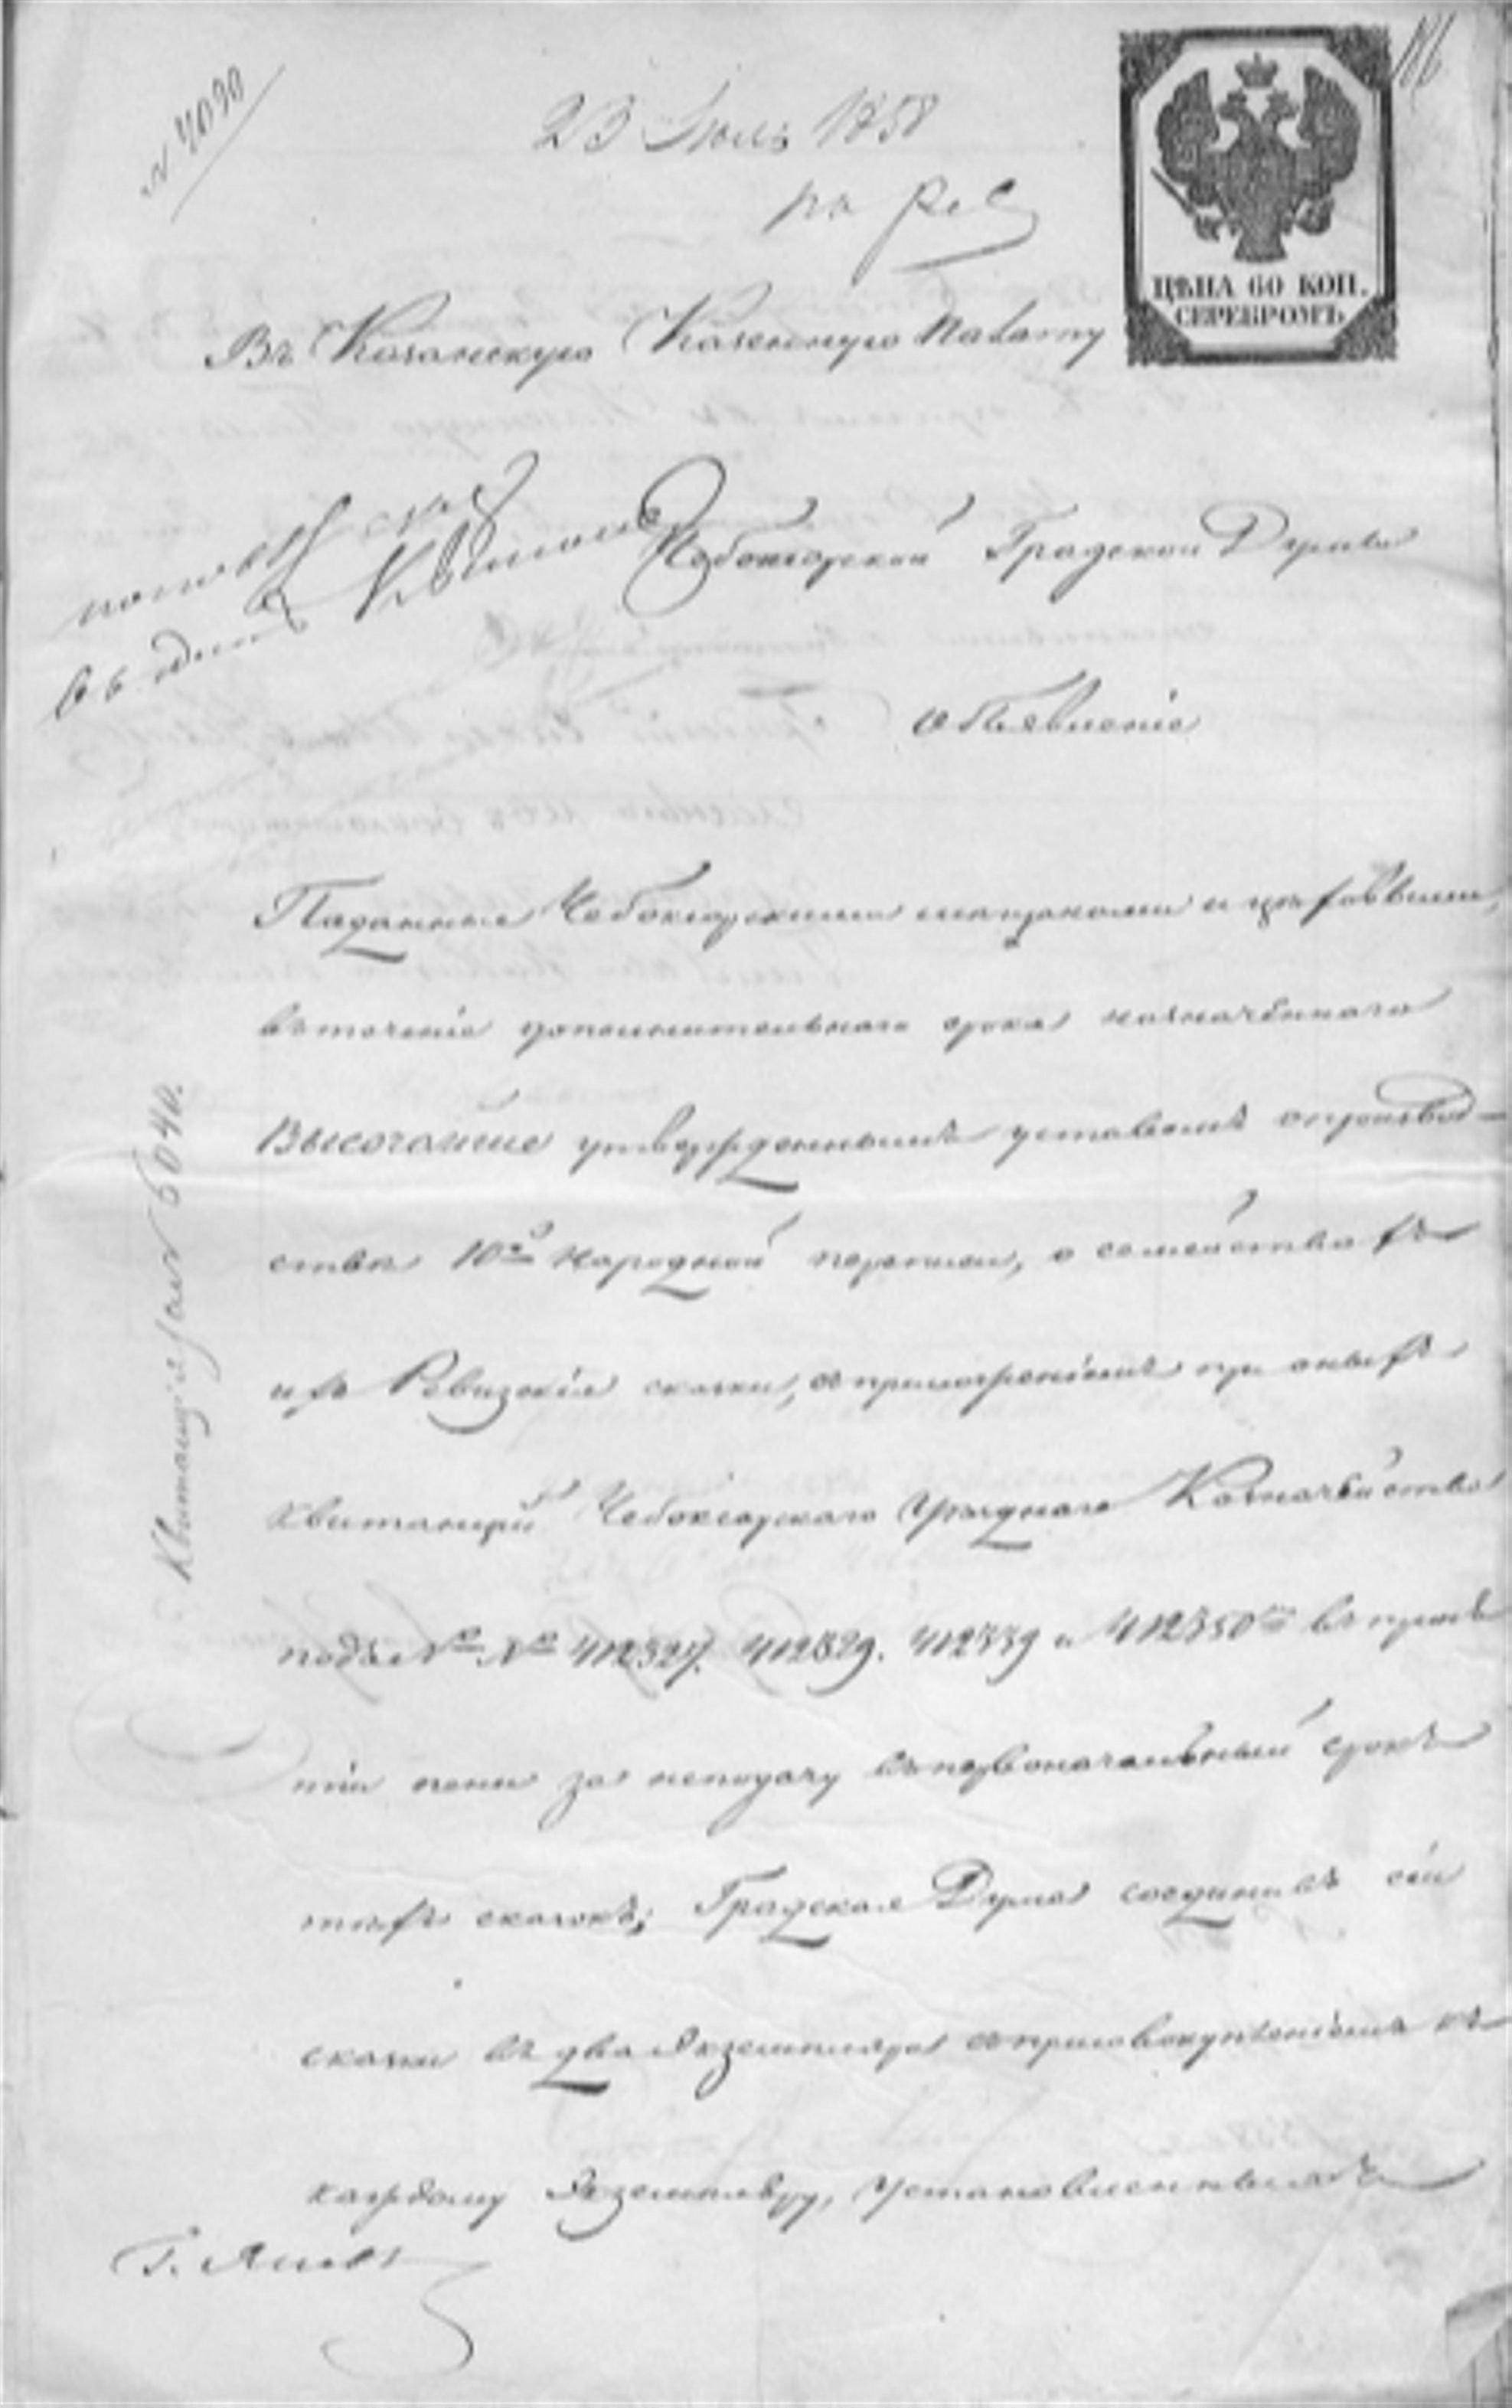 № 4090
23 Июль 1858
186
ЦѢНА 60 КОП.
СЕРЕБРОМЪ
Въ Казанскую Казенную Палату
Чебоксарской Градской Думы
объявленіе
Поданныя Чебоксарскими мещанами и цеховыми,
въ теченіе дополнительнаго срока назначеннаго
Высочайше утвержденнымъ уставомъ опроизвод-
ствѣ 10й народной переписи, о семействахъ
ихъ Ревизскія сказки, съ приложеніемъ при оныхъ
квитанцій Чебоксарскаго Уѣзднаго Казначейства
подъ №№ 412327. 412329. 412339 и 412350 въ приня
тіи пени за неподачу въ первоначальный срокъ
тѣхъ сказокъ; Градская Дума соединивъ сіи
сказки въ два Экземпляра съ присовокупленіемъ къ
каждому Экземпляру, установленныхъ
Квитанція за № 6040.